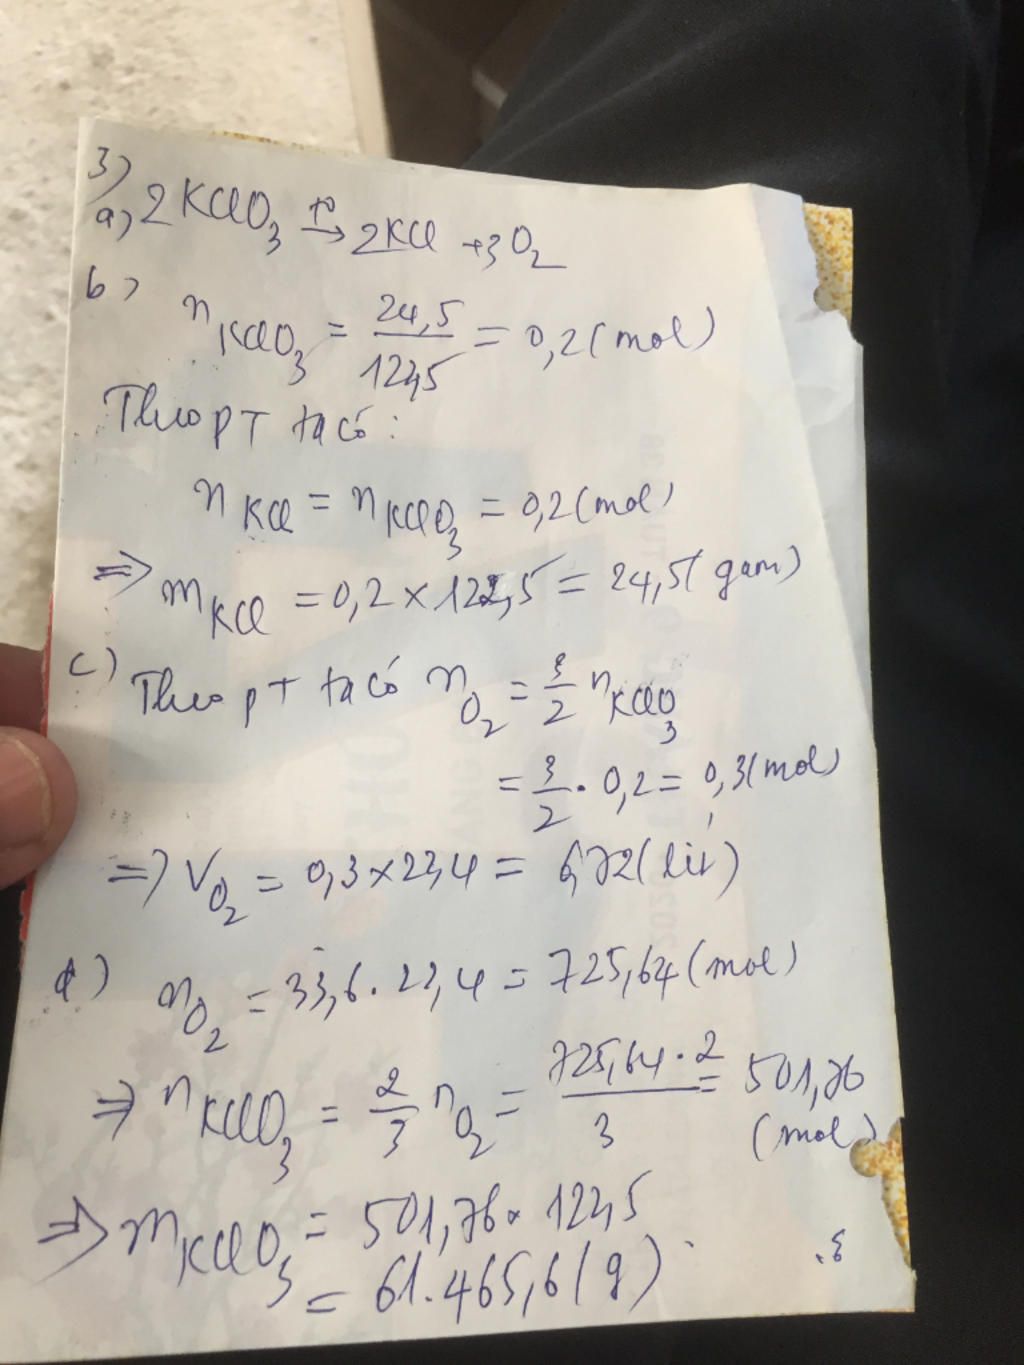 3)
a, 2KClO3 t°→ 2KCl + 3O2
b)
nKClO3 = 24,5/122,5 = 0,2 (mol)
Theo pT ta có:
nKCl = nKClO3 = 0,2 (mol)
=> mKCl = 0,2 x 122,5 = 24,5 (gam)
c) Theo pT ta có nO2 = 3/2 nKClO3
= 3/2 . 0,2 = 0,3 (mol)
=> VO2 = 0,3 x 22,4 = 6,72 (lít)
d) nO2 = 33,6 . 22,4 = 725,64 (mol)
=> nKClO3 = 2/3 nO2 = 725,64 . 2/3 = 501,76
(mol)
=> mKClO3 = 501,76 x 122,5
= 61.465,6 (g)